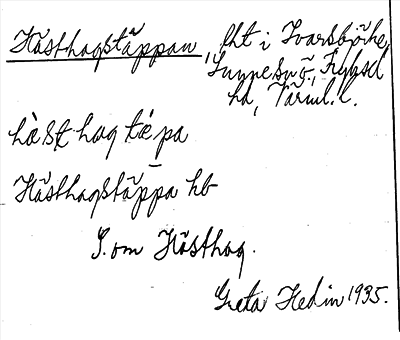 Hästhagstäppan, lht i Ivarsbjörke,
Sunnemo s:n, Fryksd
hd, Värml. l.
hàst hag tépa
Hästhagstäppa hb
S. om Hästhag.
Greta Hedin 1935.